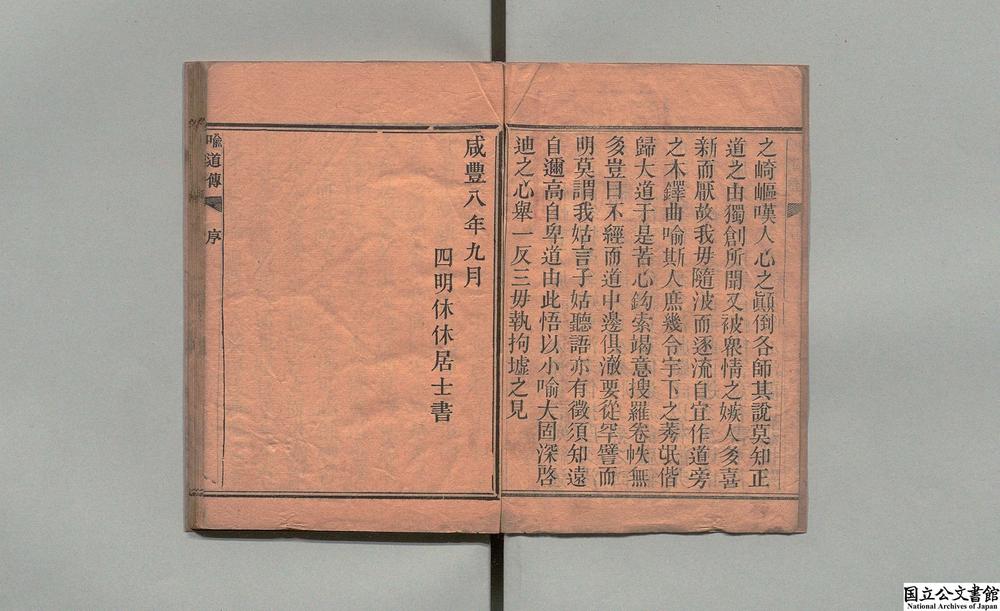 之崎嶇嘆人心之顚倒各師其說莫知正
道之由獨創所聞又被衆情之嫉人多喜
新而厭故我毋隨波而逐流自宜作道旁
之木鐸曲喻斯人庶幾令宇下之莠氓偕
歸大道于是苦心鈎索竭意搜羅卷帙無
多豈曰不經而道中邊俱澈要從罕譬而
明莫謂我姑言子姑聽語亦有徵須知遠
自邇高自卑道由此悟以小喻大固深啓
迪之心舉一反三毋執拘墟之見
咸豐八年九月
四明休休居士書
喻道傳
序
国立公文書館
National Archives of Japan